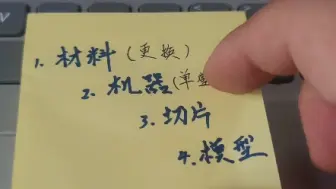 1. 材料(更换)
2. 机器(单
3. 切片
4. 模型